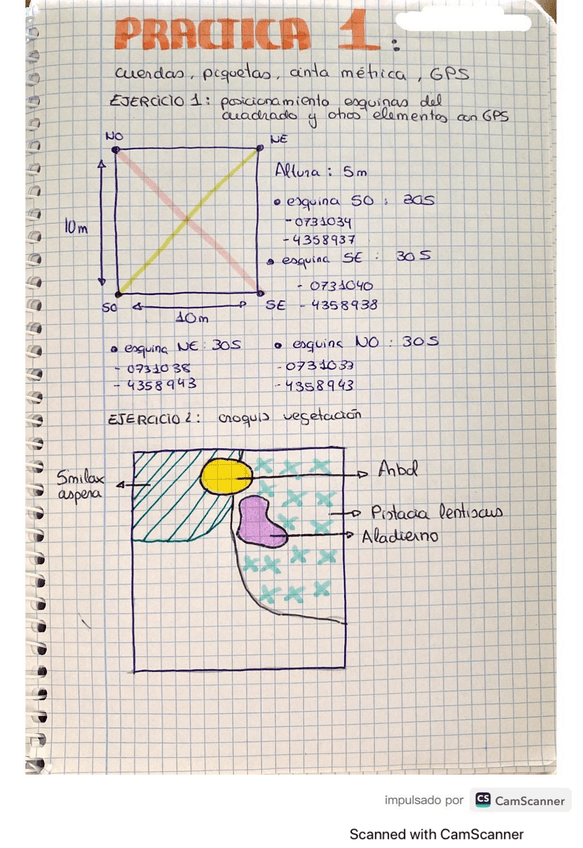 PRACTICA 1:
cuerdas, piquetas, cinta métrica, GPS
EJERCICIO 1: posicionamiento esquinas del
cuadrado y otros elementos con GPS
NO
NE
10m
SO
10m
SE
Altura: 5m
• esquina SO: 30S
- 0731034
- 4358937
• esquina SE: 30S
- 0731040
- 4358938
• esquina NE: 30S
- 0731038
- 4358943
• esquina NO: 30S
- 4358943
EJERCICIO 2: croquis vegetación
Smilax
aspera
Arbol
Pistacia lentiscus
Aladierno
impulsado por CS CamScanner
Scanned with CamScanner